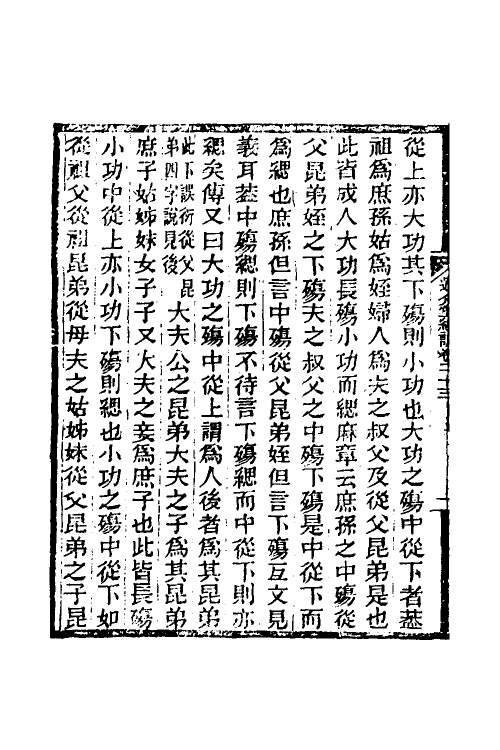 從上亦大功其下殤則小功也大功之殤中從下者蓋
祖爲庶孫姑爲姪婦人爲夫之叔父及從父昆弟是也
此皆成人大功長殤小功而緦麻章云庶孫之中殤從
父昆弟姪之下殤夫之叔父之中殤下殤是中從下而
爲緦也庶孫但言中殤從父昆弟姪但言下殤互文見
義耳葢中殤緦則下殤不待言下殤緦而中從下則亦
緦矣傳又曰大功之殤中從上謂爲人後者爲其昆弟
此下誤衍從父昆
弟四字說見後
大夫公之昆弟大夫之子爲其昆弟
庶子姑姊妹女子子又大夫之妾爲庶子也此皆長殤
小功中從上亦小功下殤則緦也小功之殤中從下如
從祖父從祖昆弟從母夫之姑姊妹從父昆弟之子昆